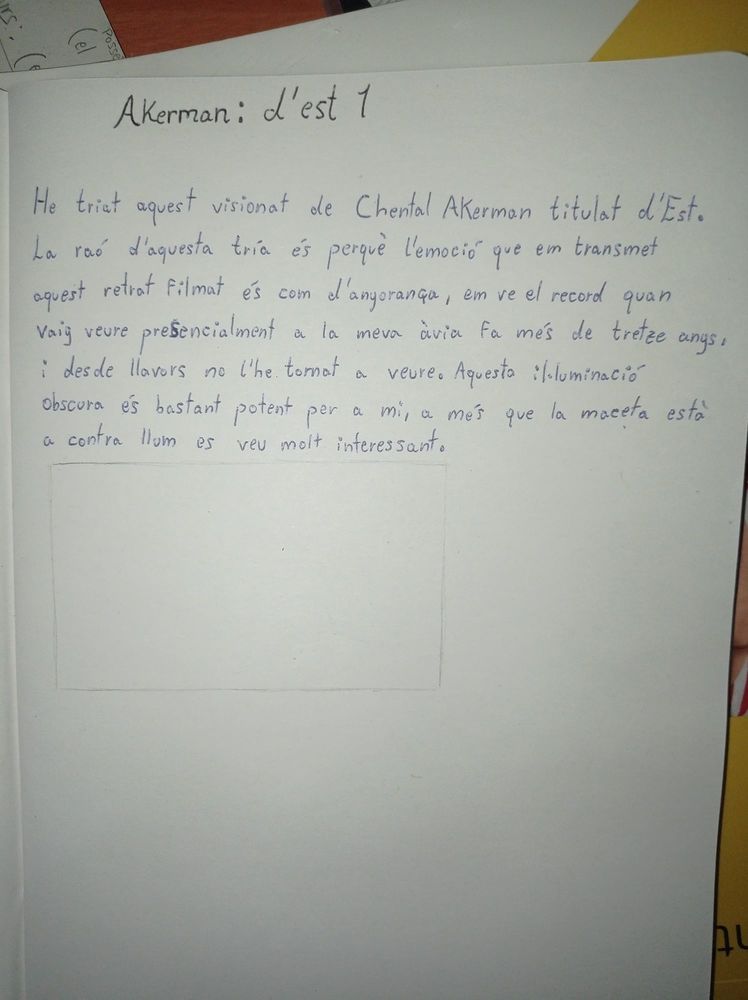 Akerman: d'est 1
He triat aquest visionat de Chental Akerman titulat d'Est.
La raó d'aquesta tría és perquè l'emoció que em transmet
aquest retrat Filmat és com d'anyorança, em ve el record quan
vaig veure presencialment a la meva àvia Fa més de tretze anys,
i desde llavors no l'he tornat a veure. Aquesta il·luminació
obscura és bastant potent per a mi, a més que la maceta està
a contra llum es veu molt interessant.
(el